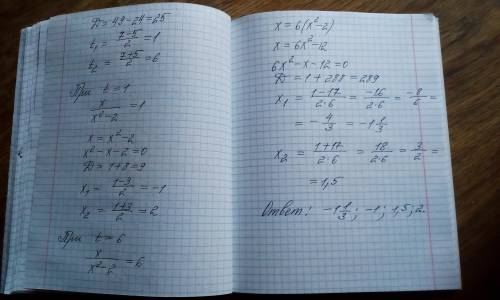 D = 49 - 24 = 25
t₁ = (7-5)/2 = 1
t₂ = (7+5)/2 = 6
При t = 1
x/(x²-2) = 1
x = x² - 2
x² - x - 2 = 0
D = 1 + 8 = 9
x₁ = (1-3)/2 = -1
x₂ = (1+3)/2 = 2
При t = 6
x/(x²-2) = 6
x = 6(x²-2)
x = 6x² - 12
6x² - x - 12 = 0
D = 1 + 288 = 289
x₁ = (1-17)/(2·6) = -16/(2·6) = -8/6 =
= -4/3 = -1 1/3
x₂ = (1+17)/(2·6) = 18/(2·6) = 3/2 =
= 1,5
Ответ: -1 1/3; -1; 1,5; 2.